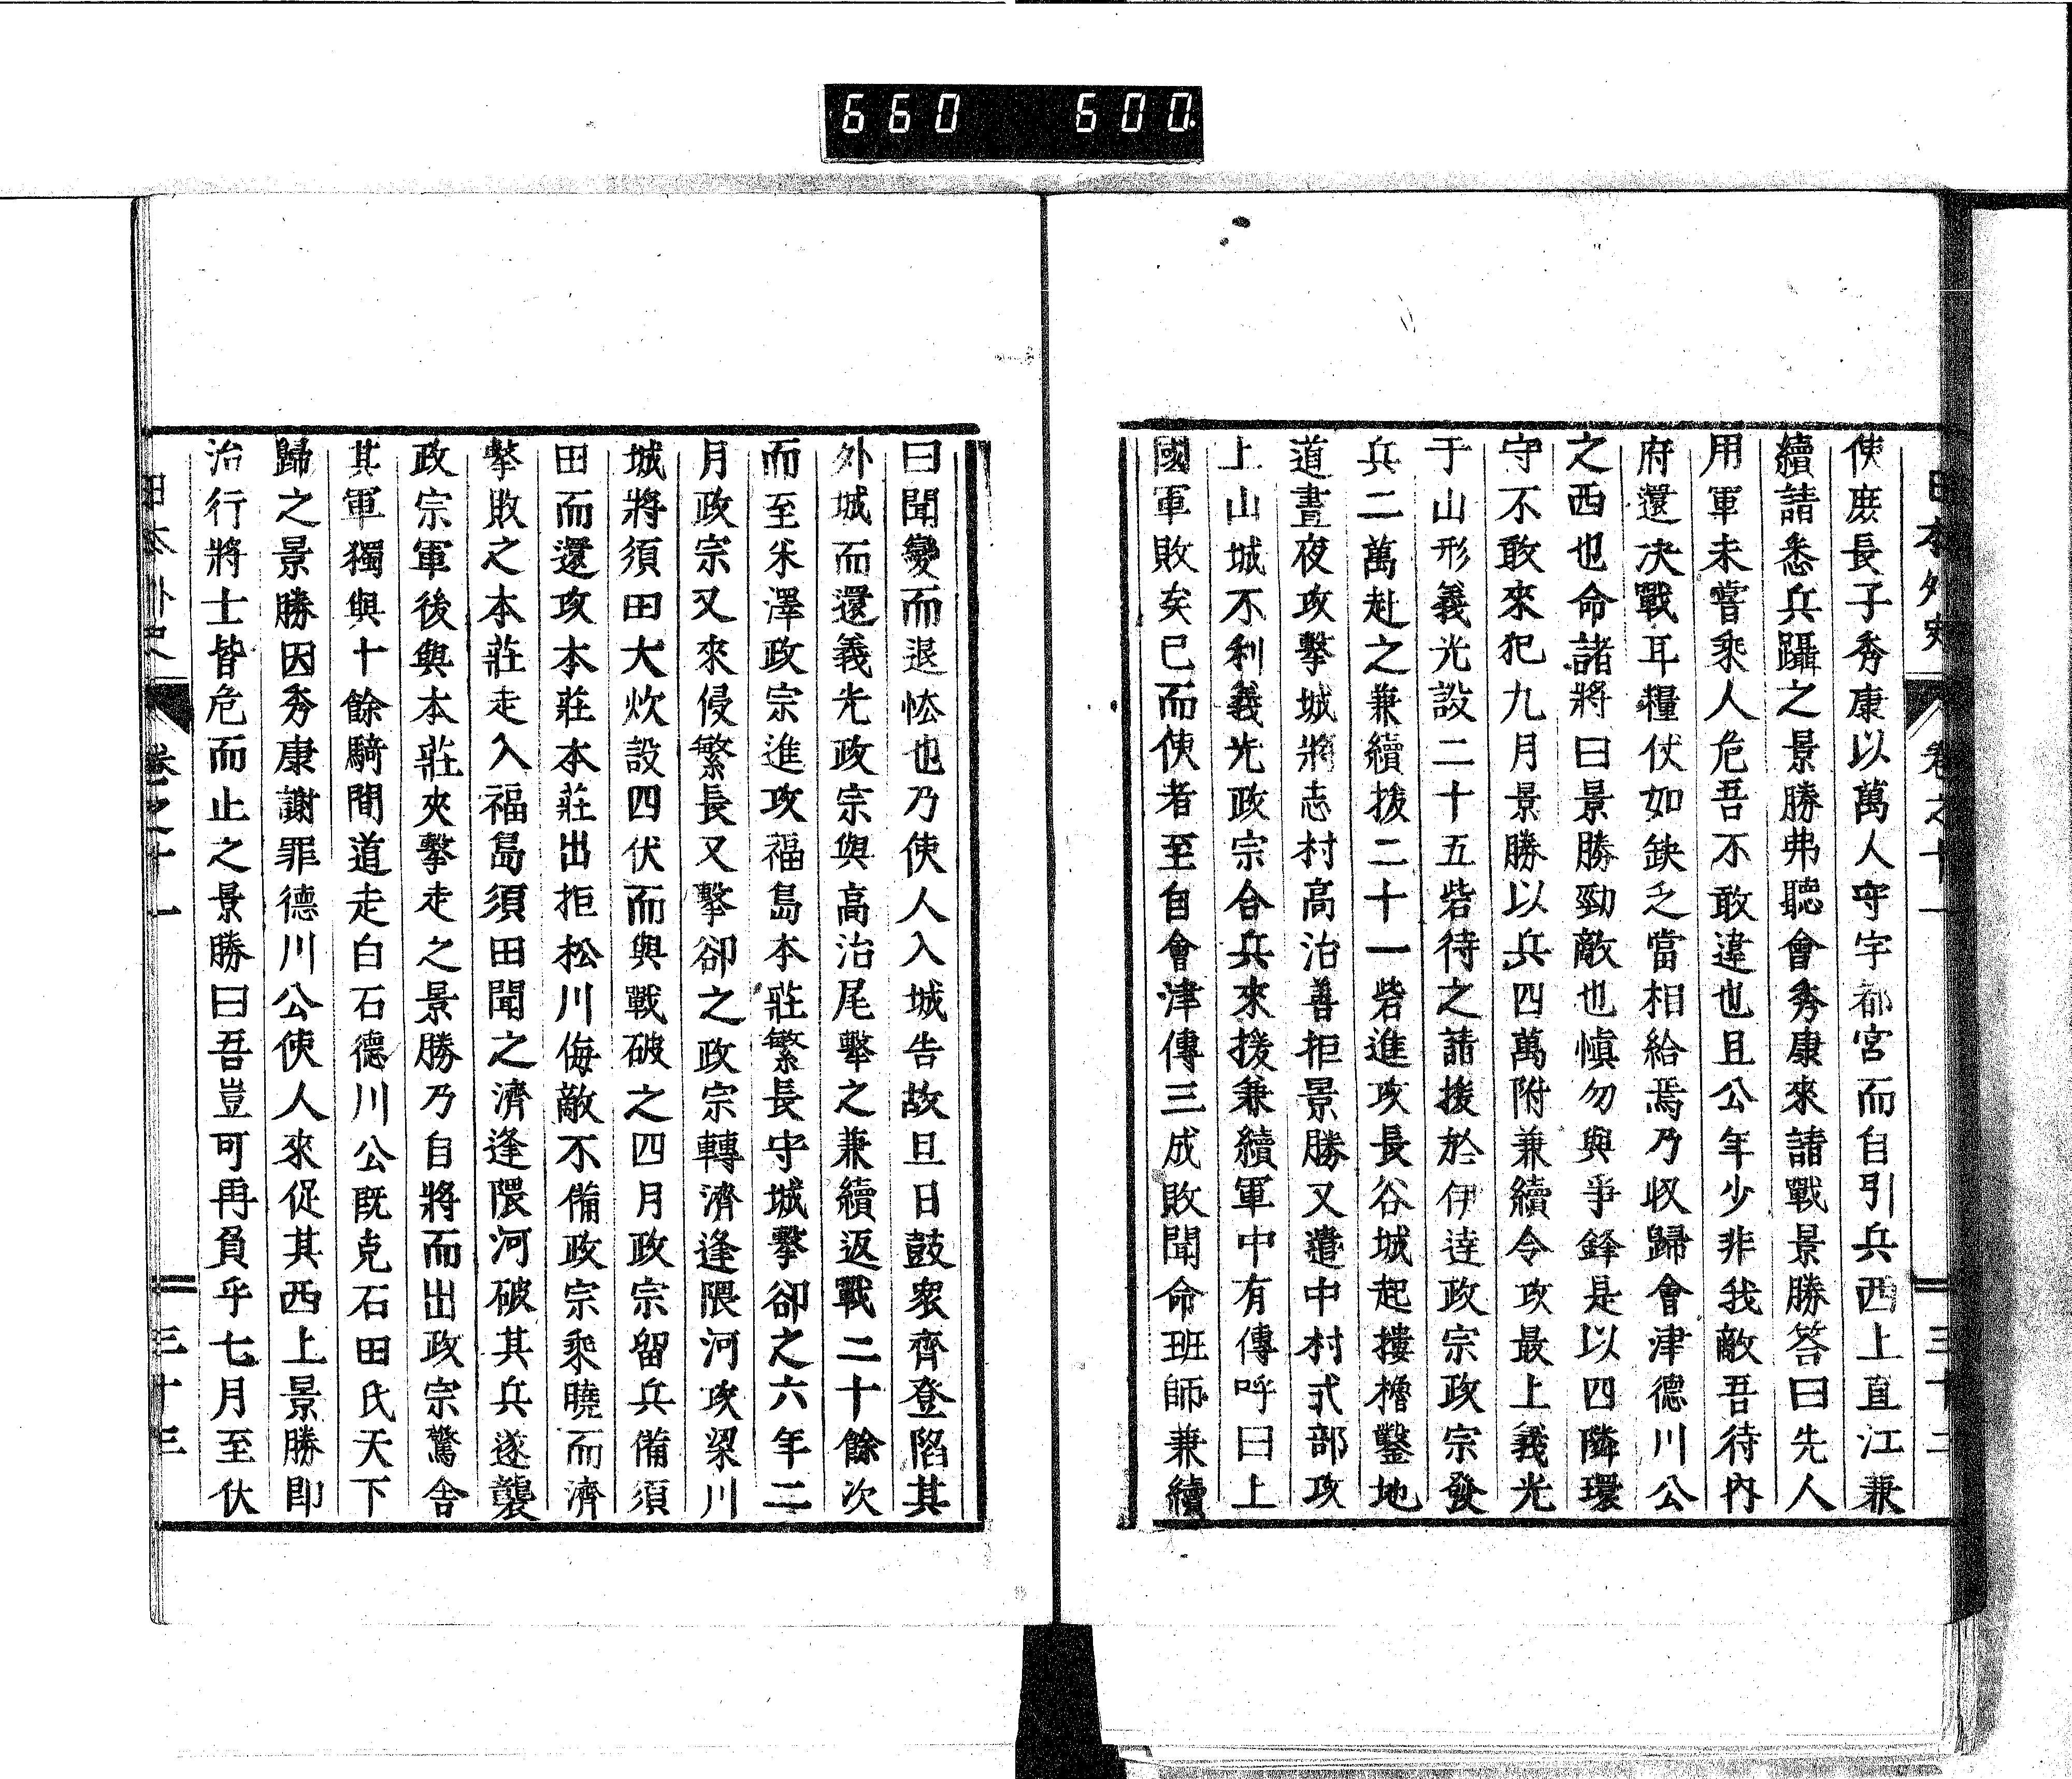 660 600.
日本外史 卷之十一 三十二
使庶長子秀康以萬人守宇都宮而自引兵西上直江兼
續請悉兵躡之景勝弗聽會秀康來請戰景勝答曰先人
用軍未嘗乘人危吾不敢違也且公年少非我敵吾待內
府還决戰耳糧仗如缺乏當相給焉乃收歸會津德川公
之西也命諸將曰景勝勁敵也愼勿與爭鋒是以四隣環
守不敢來犯九月景勝以兵四萬附兼續令攻最上義光
于山形義光設二十五砦待之請援於伊達政宗政宗發
兵二萬赴之兼續拔二十一砦進攻長谷城起摟櫓鑿地
道晝夜攻擊城將志村高治善拒景勝又遣中村式部攻
上山城不利義光政宗合兵來援兼續軍中有傳呼曰上
國軍敗矣已而使者至自會津傳三成敗聞命班師兼續
曰聞變而退恠也乃使人入城告故旦日鼓衆齊登陷其
外城而還義光政宗與高治尾擊之兼續返戰二十餘次
而至米澤政宗進攻福島本莊繁長守城擊卻之六年二
月政宗又來侵繁長又擊卻之政宗轉濟逢隈河攻梁川
城將須田大炊設四伏而與戰破之四月政宗留兵備須
田而還攻本莊本莊出拒松川侮敵不備政宗乘曉而濟
擊敗之本莊走入福島須田聞之濟逢隈河破其兵遂襲
政宗軍後與本莊夾擊走之景勝乃自將而出政宗驚舍
其軍獨與十餘騎間道走白石德川公既克石田氏天下
歸之景勝因秀康謝罪德川公使人來促其西上景勝卽
治行將士皆危而止之景勝曰吾豈可再負乎七月至伏
日本外史 卷之十一 三十三